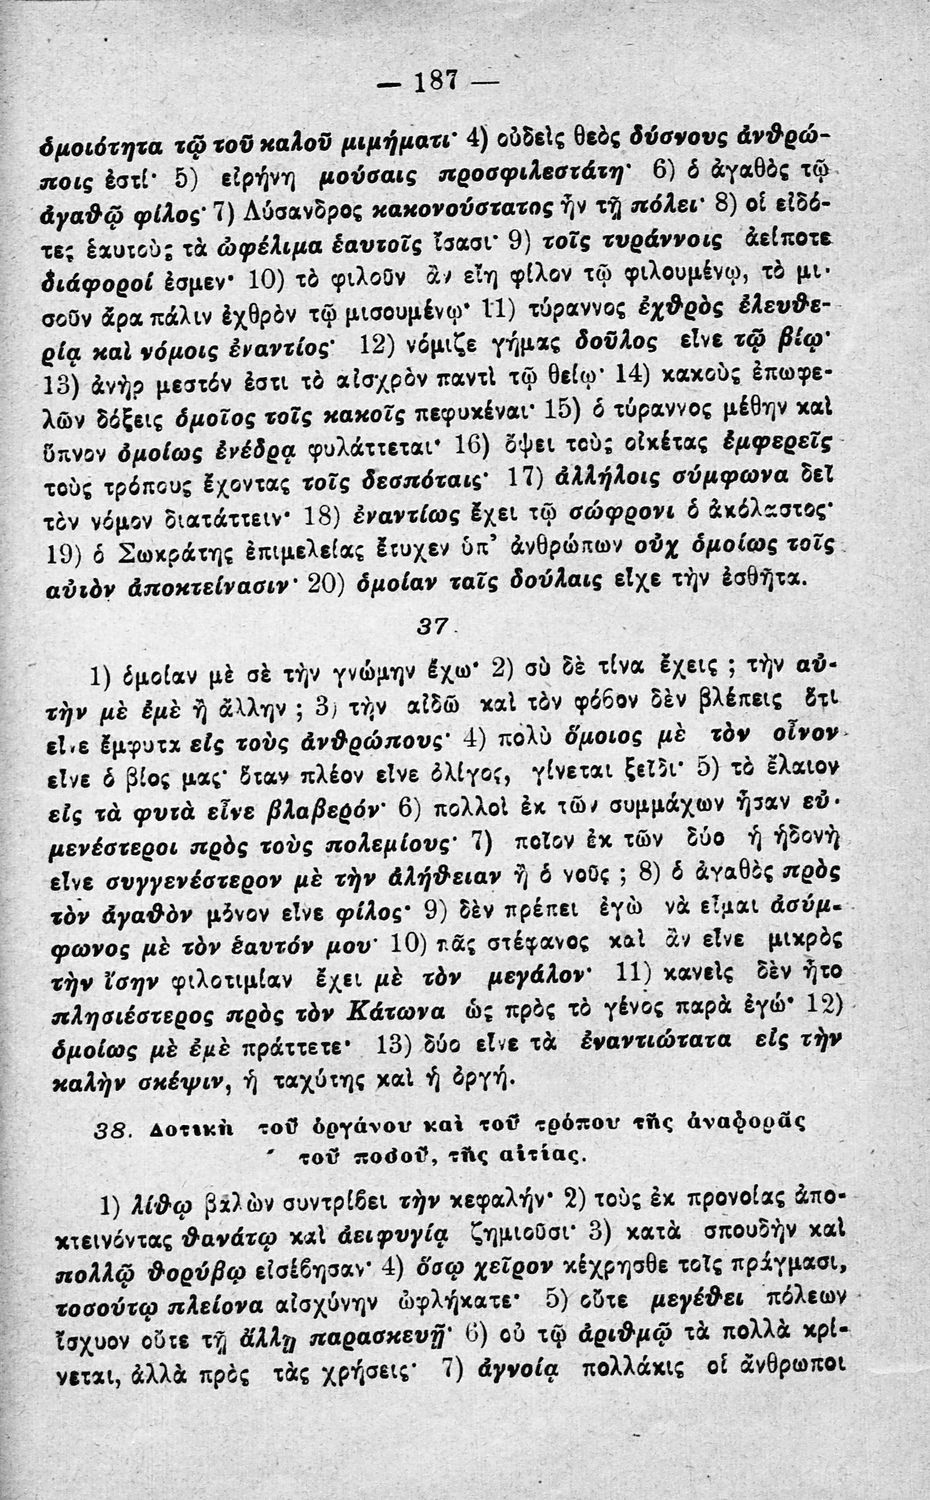 — 187 —
ὁμοιότητα τῷ τοῦ καλοῦ μιμήματι· 4) οὐδεὶς θεὸς δύσνους ἀνθρώ-
ποις ἐστί· 5) εἰρήνη μούσαις προσφιλεστάτη· 6) ὁ ἀγαθὸς τῷ
ἀγαθῷ φίλος· 7) Λύσανδρος κακονούστατος ἦν τῇ πόλει· 8) οἱ εἰδό-
τες ἑαυτοὺς τὰ ὠφέλιμα ἑαυτοῖς ἴσασι· 9) τοῖς τυράννοις ἀείποτε
διάφοροί ἐσμεν· 10) τὸ φιλοῦν ἂν εἴη φίλον τῷ φιλουμένῳ, τὸ μι-
σοῦν ἄρα πάλιν ἐχθρὸν τῷ μισουμένῳ· 11) τύραννος ἐχθρὸς ἐλευθε-
ρίᾳ καὶ νόμοις ἐναντίος· 12) νόμιζε γήμας δοῦλος εἶνε τῷ βίῳ·
13) ἀνὴρ μεστόν ἐστι τὸ αἰσχρὸν παντὶ τῷ θείῳ· 14) κακοὺς ἐπωφε-
λῶν δόξεις ὁμοῖος τοῖς κακοῖς πεφυκέναι· 15) ὁ τύραννος μέθην καὶ
ὕπνον ὁμοίως ἐνέδρᾳ φυλάττεται· 16) ὄψει τοὺς οἰκέτας ἐμφερεῖς
τοὺς τρόπους ἔχοντας τοῖς δεσπόταις· 17) ἀλλήλοις σύμφωνα δεῖ
τὸν νόμον διατάττειν· 18) ἐναντίως ἔχει τῷ σώφρονι ὁ ἀκόλαστος·
19) ὁ Σωκράτης ἐπιμελείας ἔτυχεν ὑπ’ ἀνθρώπων οὐχ ὁμοίως τοῖς
αὐτὸν ἀποκτείνασιν· 20) ὁμοίαν ταῖς δούλαις εἶχε τὴν ἐσθῆτα.
37.
1) ὁμοίαν μὲ σὲ τὴν γνώμην ἔχω· 2) σὺ δὲ τίνα ἔχεις ; τὴν αὐ-
τὴν μὲ ἐμὲ ἢ ἄλλην ; 3) τὴν αἰδῶ καὶ τὸν φόβον δὲν βλέπεις ὅτι
εἶνε ἔμφυτα εἰς τοὺς ἀνθρώπους· 4) πολὺ ὅμοιος μὲ τὸν οἶνον
εἶνε ὁ βίος μας· ὅταν πλέον εἶνε ὀλίγος, γίνεται ξεῖδι· 5) τὸ ἔλαιον
εἰς τὰ φυτὰ εἶνε βλαβερόν· 6) πολλοὶ ἐκ τῶν συμμάχων ἦσαν εὐ-
μενέστεροι πρὸς τοὺς πολεμίους· 7) ποῖον ἐκ τῶν δύο ἡ ἡδονὴ
εἶνε συγγενέστερον μὲ τὴν ἀλήθειαν ἢ ὁ νοῦς ; 8) ὁ ἀγαθὸς πρὸς
τὸν ἀγαθὸν μόνον εἶνε φίλος· 9) δὲν πρέπει ἐγὼ νὰ εἶμαι ἀσύμ-
φωνος μὲ τὸν ἑαυτόν μου· 10) πᾶς στέφανος καὶ ἂν εἶνε μικρὸς
τὴν ἴσην φιλοτιμίαν ἔχει μὲ τὸν μεγάλον· 11) κανεὶς δὲν ἦτο
πλησιέστερος πρὸς τὸν Κάτωνα ὡς πρὸς τὸ γένος παρὰ ἐγώ· 12)
ὁμοίως μὲ ἐμὲ πράττετε· 13) δύο εἶνε τὰ ἐναντιώτατα εἰς τὴν
καλὴν σκέψιν, ἡ ταχύτης καὶ ἡ ὀργή.
38. Δοτικὴ τοῦ ὀργάνου καὶ τοῦ τρόπου τῆς ἀναφορᾶς
τοῦ ποσοῦ, τῆς αἰτίας.
1) λίθῳ βαλὼν συντρίβει τὴν κεφαλήν· 2) τοὺς ἐκ προνοίας ἀπο-
κτεινόντας θανάτῳ καὶ ἀειφυγίᾳ ζημιοῦσι· 3) κατὰ σπουδὴν καὶ
πολλῷ θορύβῳ εἰσέβησαν· 4) ὅσῳ χεῖρον κέχρησθε τοῖς πράγμασι,
τοσούτῳ πλείονα αἰσχύνην ὠφλήκατε· 5) οὔτε μεγέθει πόλεων
ἴσχυον οὔτε τῇ ἄλλῃ παρασκευῇ· 6) οὐ τῷ ἀριθμῷ τὰ πολλὰ κρί-
νεται, ἀλλὰ πρὸς τὰς χρήσεις· 7) ἀγνοίᾳ πολλάκις οἱ ἄνθρωποι